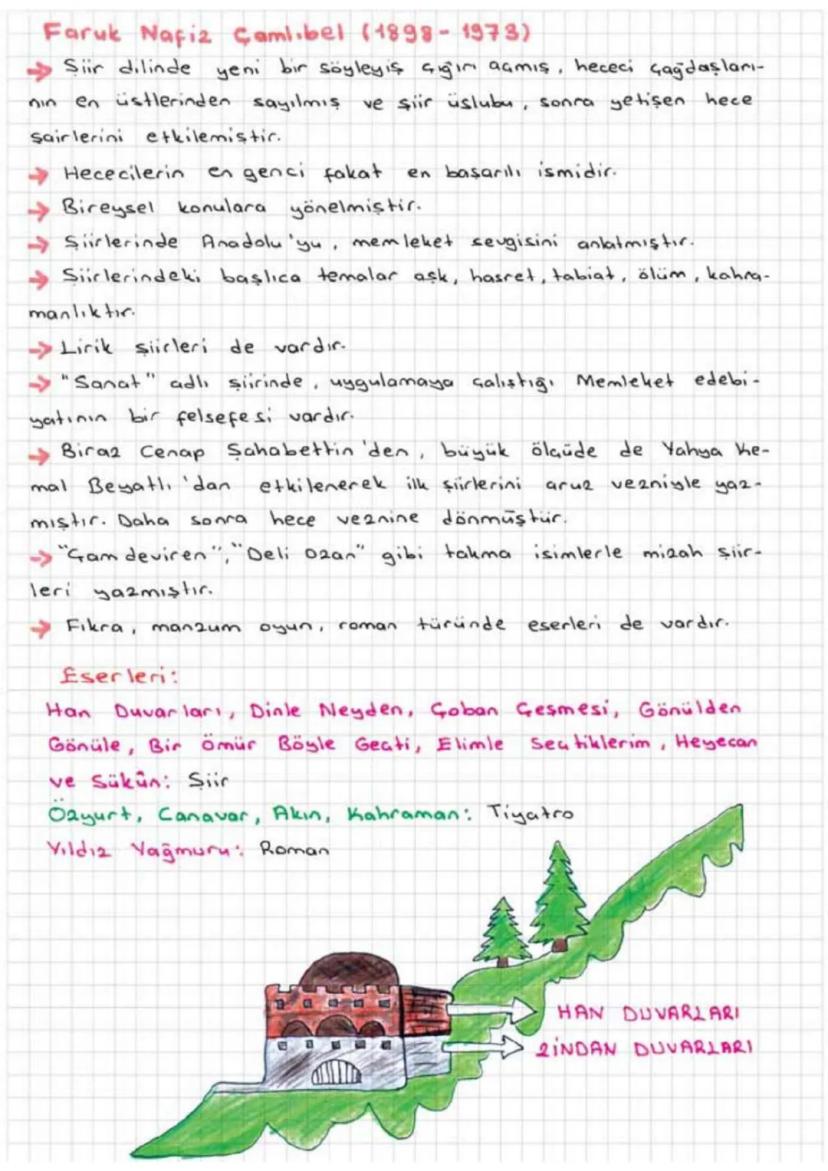 Faruk Nafiz Çamlıbel (1898-1973)
→ Şiir dilinde yeni bir söyleyiş çığırı açmış, hececi çağdaşları-
nın en üstlerinden sayılmış ve şiir üslubu, sonra yetişen hece
şairlerini etkilemiştir.
→ Hececilerin en genci fakat en başarılı ismidir.
→ Bireysel konulara yönelmiştir.
→ Şiirlerinde Anadolu'yu, memleket sevgisini anlatmıştır.
→ Şiirlerindeki başlıca temalar aşk, hasret, tabiat, ölüm, kahra-
manlıktır.
→ Lirik şiirleri de vardır.
→ "Sanat" adlı şiirinde, uygulamaya çalıştığı Memleket edebi-
yatının bir felsefesi vardır.
→ Biraz Cenap Şahabettin'den, büyük ölçüde de Yahya Ke-
mal Beyatlı'dan etkilenerek ilk şiirlerini aruz vezniyle yaz-
mıştır. Daha sonra hece veznine dönmüştür.
→ "Çamdeviren", "Deli Ozan" gibi takma isimlerle mizah şiir-
leri yazmıştır.
→ Fıkra, manzum oyun, roman türünde eserleri de vardır.
Eserleri:
Han Duvarları, Dinle Neyden, Çoban Çeşmesi, Gönülden
Gönüle, Bir Ömür Böyle Geçti, Elimle Seçtiklerim, Heyecan
ve Sükûn: Şiir
Özyurt, Canavar, Akın, Kahraman: Tiyatro
Yıldız Yağmuru: Roman
HAN DUVARLARI
ZİNDAN DUVARLARI